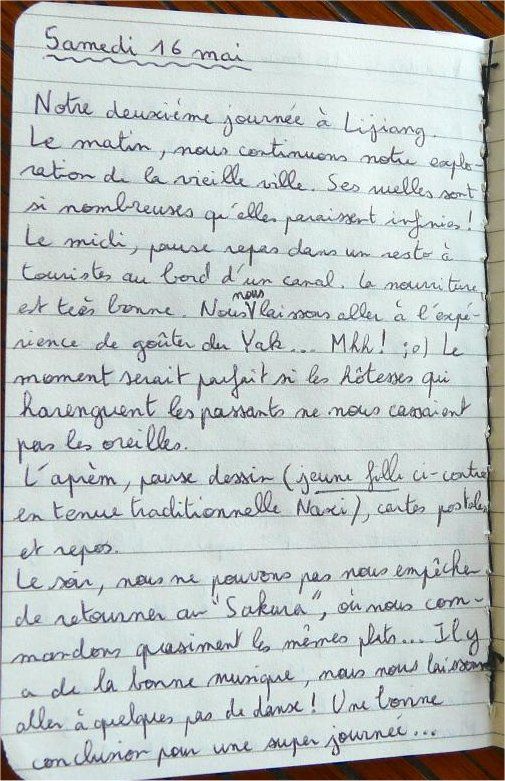 Samedi 16 mai
Notre deuxième journée à Lijiang.
Le matin, nous continuons notre explo-
ration de la vieille ville. Ses ruelles sont
si nombreuses qu'elles paraissent infinies !
Le midi, pause repas dans un resto à
touristes au bord d'un canal. La nourriture
est très bonne. Nous nous laissons aller à l'expé-
rience de goûter du Yak... Mhh ! ;o) Le
moment serait parfait si les hôtesses qui
harenguent les passants ne nous cassaient
pas les oreilles.
L'aprèm, pause dessin (jeune fille ci-contre
en tenue traditionnelle Naxi), cartes postales
et repos.
Le soir, nous ne pouvons pas nous empêcher
de retourner au "Sakura", où nous com-
mandons quasiment les mêmes plats... Il y
a de la bonne musique, nous nous laissons
aller à quelques pas de danse ! Une bonne
conclusion pour une super journée...